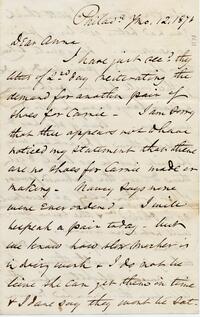 Philada. 7mo. 12. 187
Dear Anna
I have just rec'd thy
letter of 2nd day reiterating the
demand for another pair of
shoes for Carrie - I am sorry
that thee appears not to have
noticed my statement that there
are no shoes for Carrie made or
making - Nancy says none
were ever ordered - I will
bespeak a pair today - but
we know how slow
is doing work - I do not be
lieve she can get them in time
& I dare say they wont be sat-